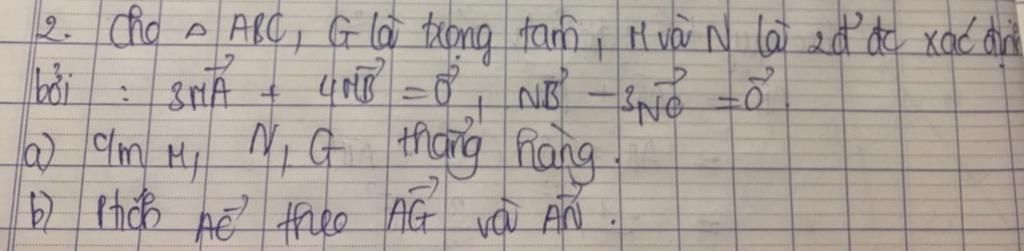 2. Cho △ ABC, G là trọng tâm, M và N là 2đ' đc xác định
bởi : 3MA⃗ + 4MB⃗ = 0⃗, NB⃗ - 3NC⃗ = 0⃗
a) CMR M, N, G thẳng hàng.
b) Ptích AC⃗ theo AG⃗ và AN⃗.